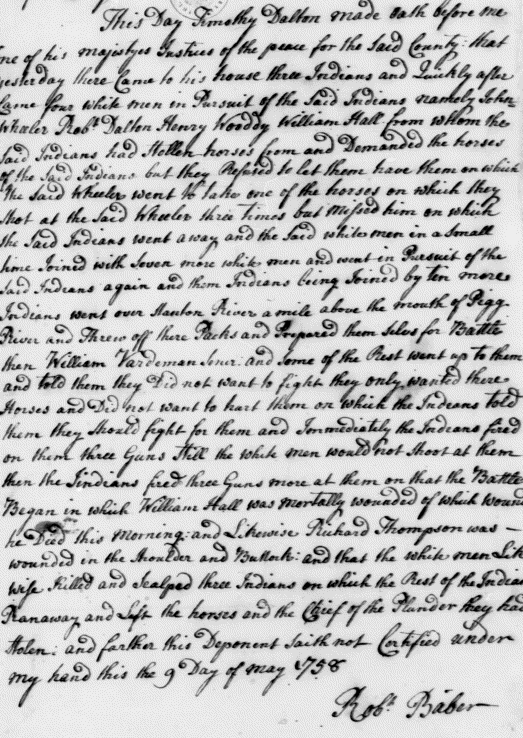 This Day Timothy Dalton made oath before me
one of his majestyes Justices of the peace for the Said County: that
yesterday there Came to his house three Indians and Quickly after
Came four white men in Pursuit of the Said Indians namely John
Wheeler Robt. Dalton Henry Wooddy William Hall from whom the
Said Indians had Stollen horses from and Demanded the horses
of the Said Indians but they Refused to let them have them on which
the Said Wheeler went to take one of the horses on which they
Shot at the Said Wheeler three times but missed him on which
the Said Indians went away and the Said white men in a Small
time Joined with Seven more white men and went in Pursuit of the
Said Indians again and them Indians being Joined by ten more
Indians went over Stanton River a mile above the mouth of Pigg
River and Threw off there Packs and Prepared them Selves for Battle
then William Vardeman Senr: and Some of the Rest went up to them
and told them they Did not want to fight they only wanted there
Horses and Did not want to hurt them on which the Indians told
them they Should fight for them and Immediately the Indians fired
on them three Guns Still the white men would not Shoot at them
then the Indians fired three Guns more at them on that the Battle
Began in which William Hall was mortally wounded of which wound
he Died this morning: and Likewise Richard Thompson was –
wounded in the Shoulder and Buttock: and that the white men Like
wise Killed and Scalped three Indians on which the Rest of the Indians
Ranaway and Left the horses and the Chief of the Plunder they had
Stolen: and farther this Deponent Saith not Certified under
my hand this the 9 Day of may 1758
Robt. Baber